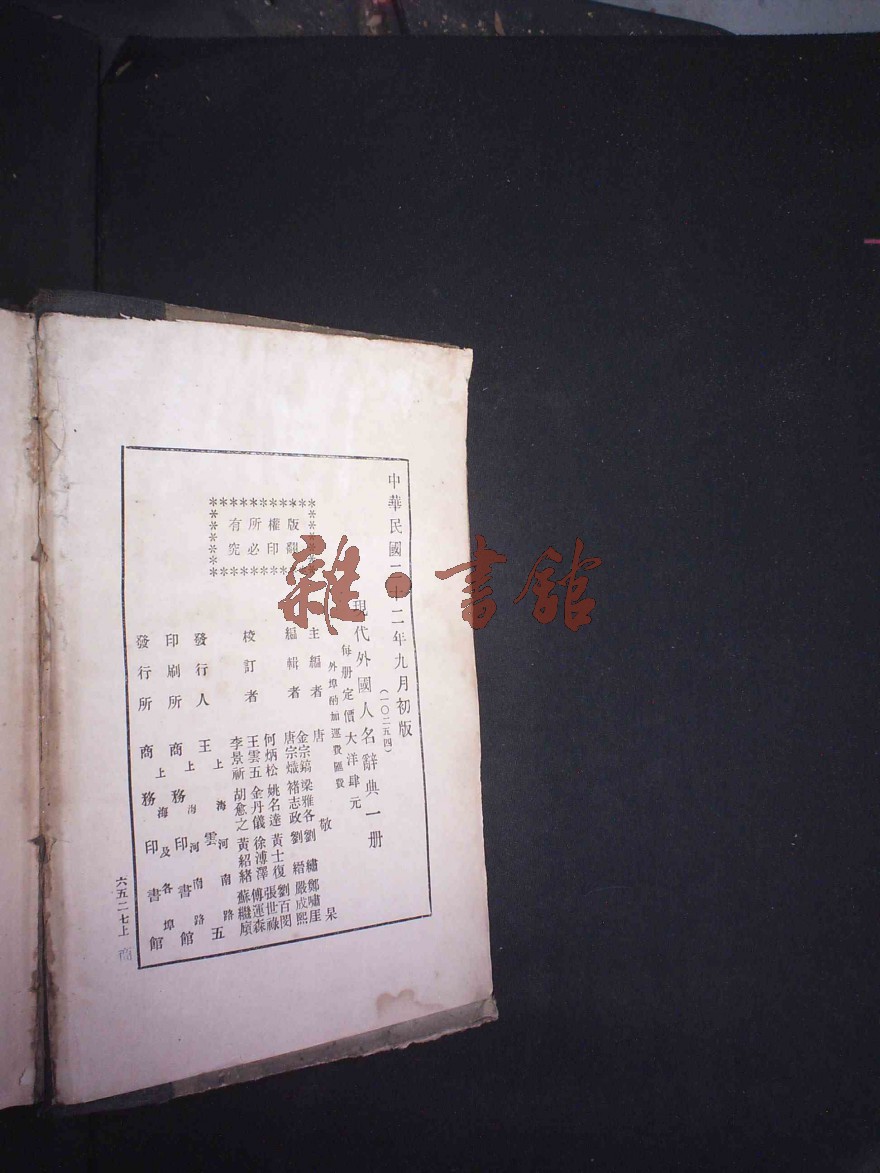 中華民國二十二年九月初版
(一〇二五四)
現代外國人名辭典一册
每册定價大洋肆元
外埠酌加運費匯費
主編者 唐敬杲
編輯者 金宗鎬 梁雅各 劉繡 鄭嘯厓
唐宗熾 褚志政 劉縉 嚴成熙
校訂者 何炳松 姚名達 黃士復 劉百閔
王雲五 金丹儀 徐溥澤 張世祿
李景新 胡愈之 黃紹緒 傅運森
蘇繼廎
發行人 王雲五
上海河南路
印刷所 商務印書館
上海河南路
發行所 商務印書館
上海及各埠
版權所有
翻印必究
六五二七上
雜·書館